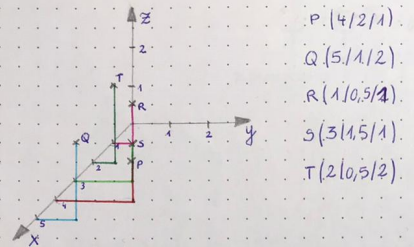 z
2
T
1
R
1
2
y
Q
1
S
2
P
3
4
5
x
P (4/2/1)
Q (5/1/2)
R (1/0,5/1)
S (3/1,5/1)
T (2/0,5/2)